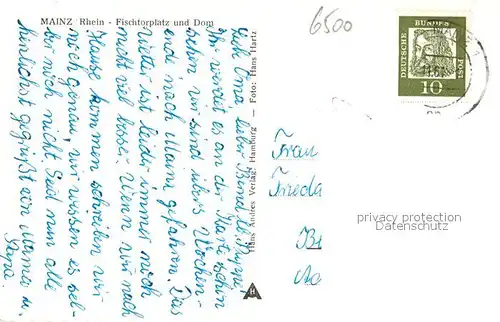 MAINZ / Rhein - Fischtorplatz und Dom
6500
DEUTSCHE
BUNDES
POST
10
Liebe Oma, lieber
Ihr werdet es an der Karte schon
sehen wir sind übers Wochen-
ende nach Mainz gefahren. Das
Wetter ist leider immer noch
nicht viel besser. Wenn wir nach
Hause kommen schreiben wir
noch genau, wir wissen es sel-
ber noch nicht. Seid nun alle
herzlichst gegrüßt von Mama u.
Papa.
Hans Andres Verlag, Hamburg — Foto: Hans Hartz
Frau
Frieda
privacy protection
Automatic Watermark